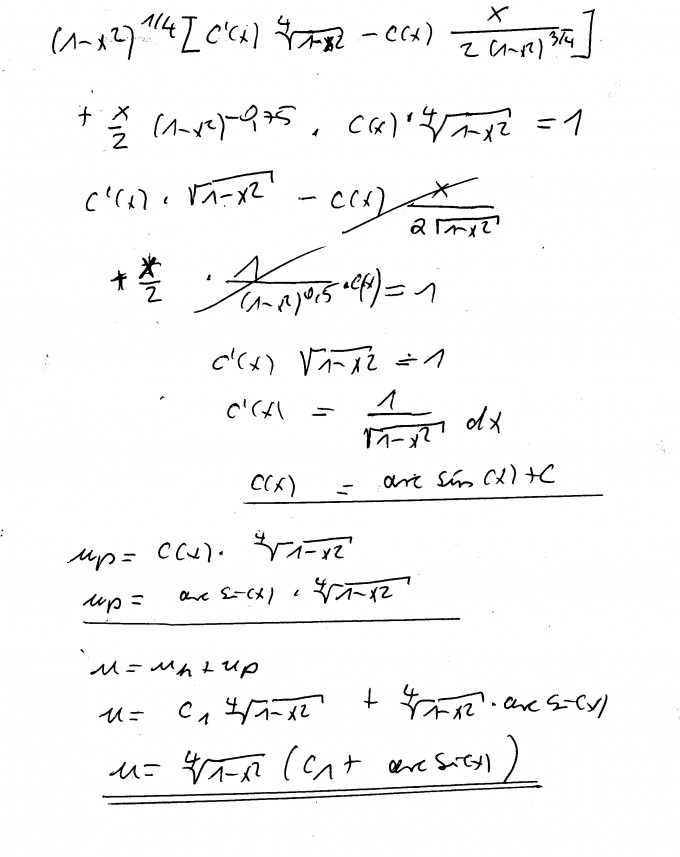 (1-x²)^{1/4} [ C'(x) ⁴√(1-x²) - C(x) x / (2 (1-x²)^{3/4}) ]
+ x/2 (1-x²)^{-0,75} · C(x) · ⁴√(1-x²) = 1
C'(x) · √(1-x²) - C(x) x / (2√(1-x²))
+ x/2 · 1 / (1-x²)^{0,5} · C(x) = 1
C'(x) √(1-x²) = 1
C'(x) = 1 / √(1-x²) dx
C(x) = arc sin (x) + C
up = C(x) · ⁴√(1-x²)
up = arc sin(x) · ⁴√(1-x²)
u = uh + up
u = C1 ⁴√(1-x²) + ⁴√(1-x²) · arc sin(x)
u = ⁴√(1-x²) (C1 + arc sin(x))